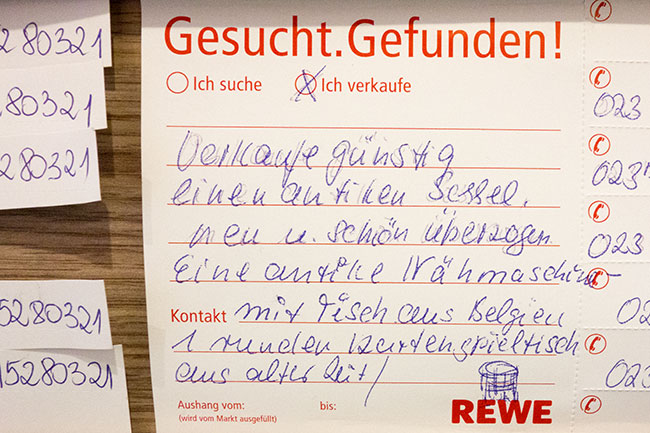 5280321
80321
80321
5280321
15280321
Gesucht.Gefunden!
Ich suche Ich verkaufe
Verkaufe günstig
einen antiken Sessel,
neu u. schön überzogen
Eine antike Nähmaschine
Kontakt mit Tisch aus Belgien
1 runden Kartenspieltisch
aus alter Zeit/
Aushang vom: bis:
(wird vom Markt ausgefüllt)
REWE
023
023
023
02
023